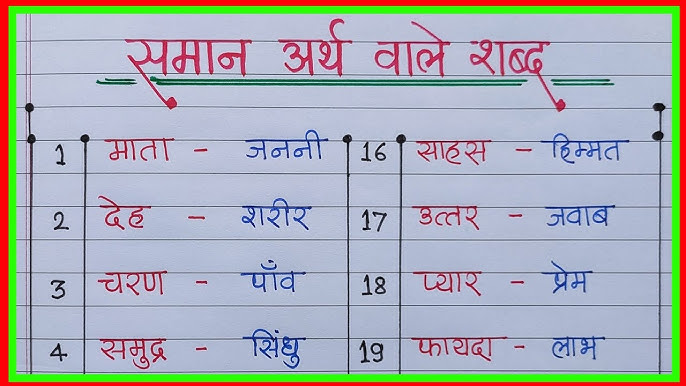 समान अर्थ वाले शब्द
1 माता - जननी 16 साहस - हिम्मत
2 देह - शरीर 17 उत्तर - जवाब
3 चरण - पाँव 18 प्यार - प्रेम
4 समुद्र - सिंधु 19 फायदा - लाभ